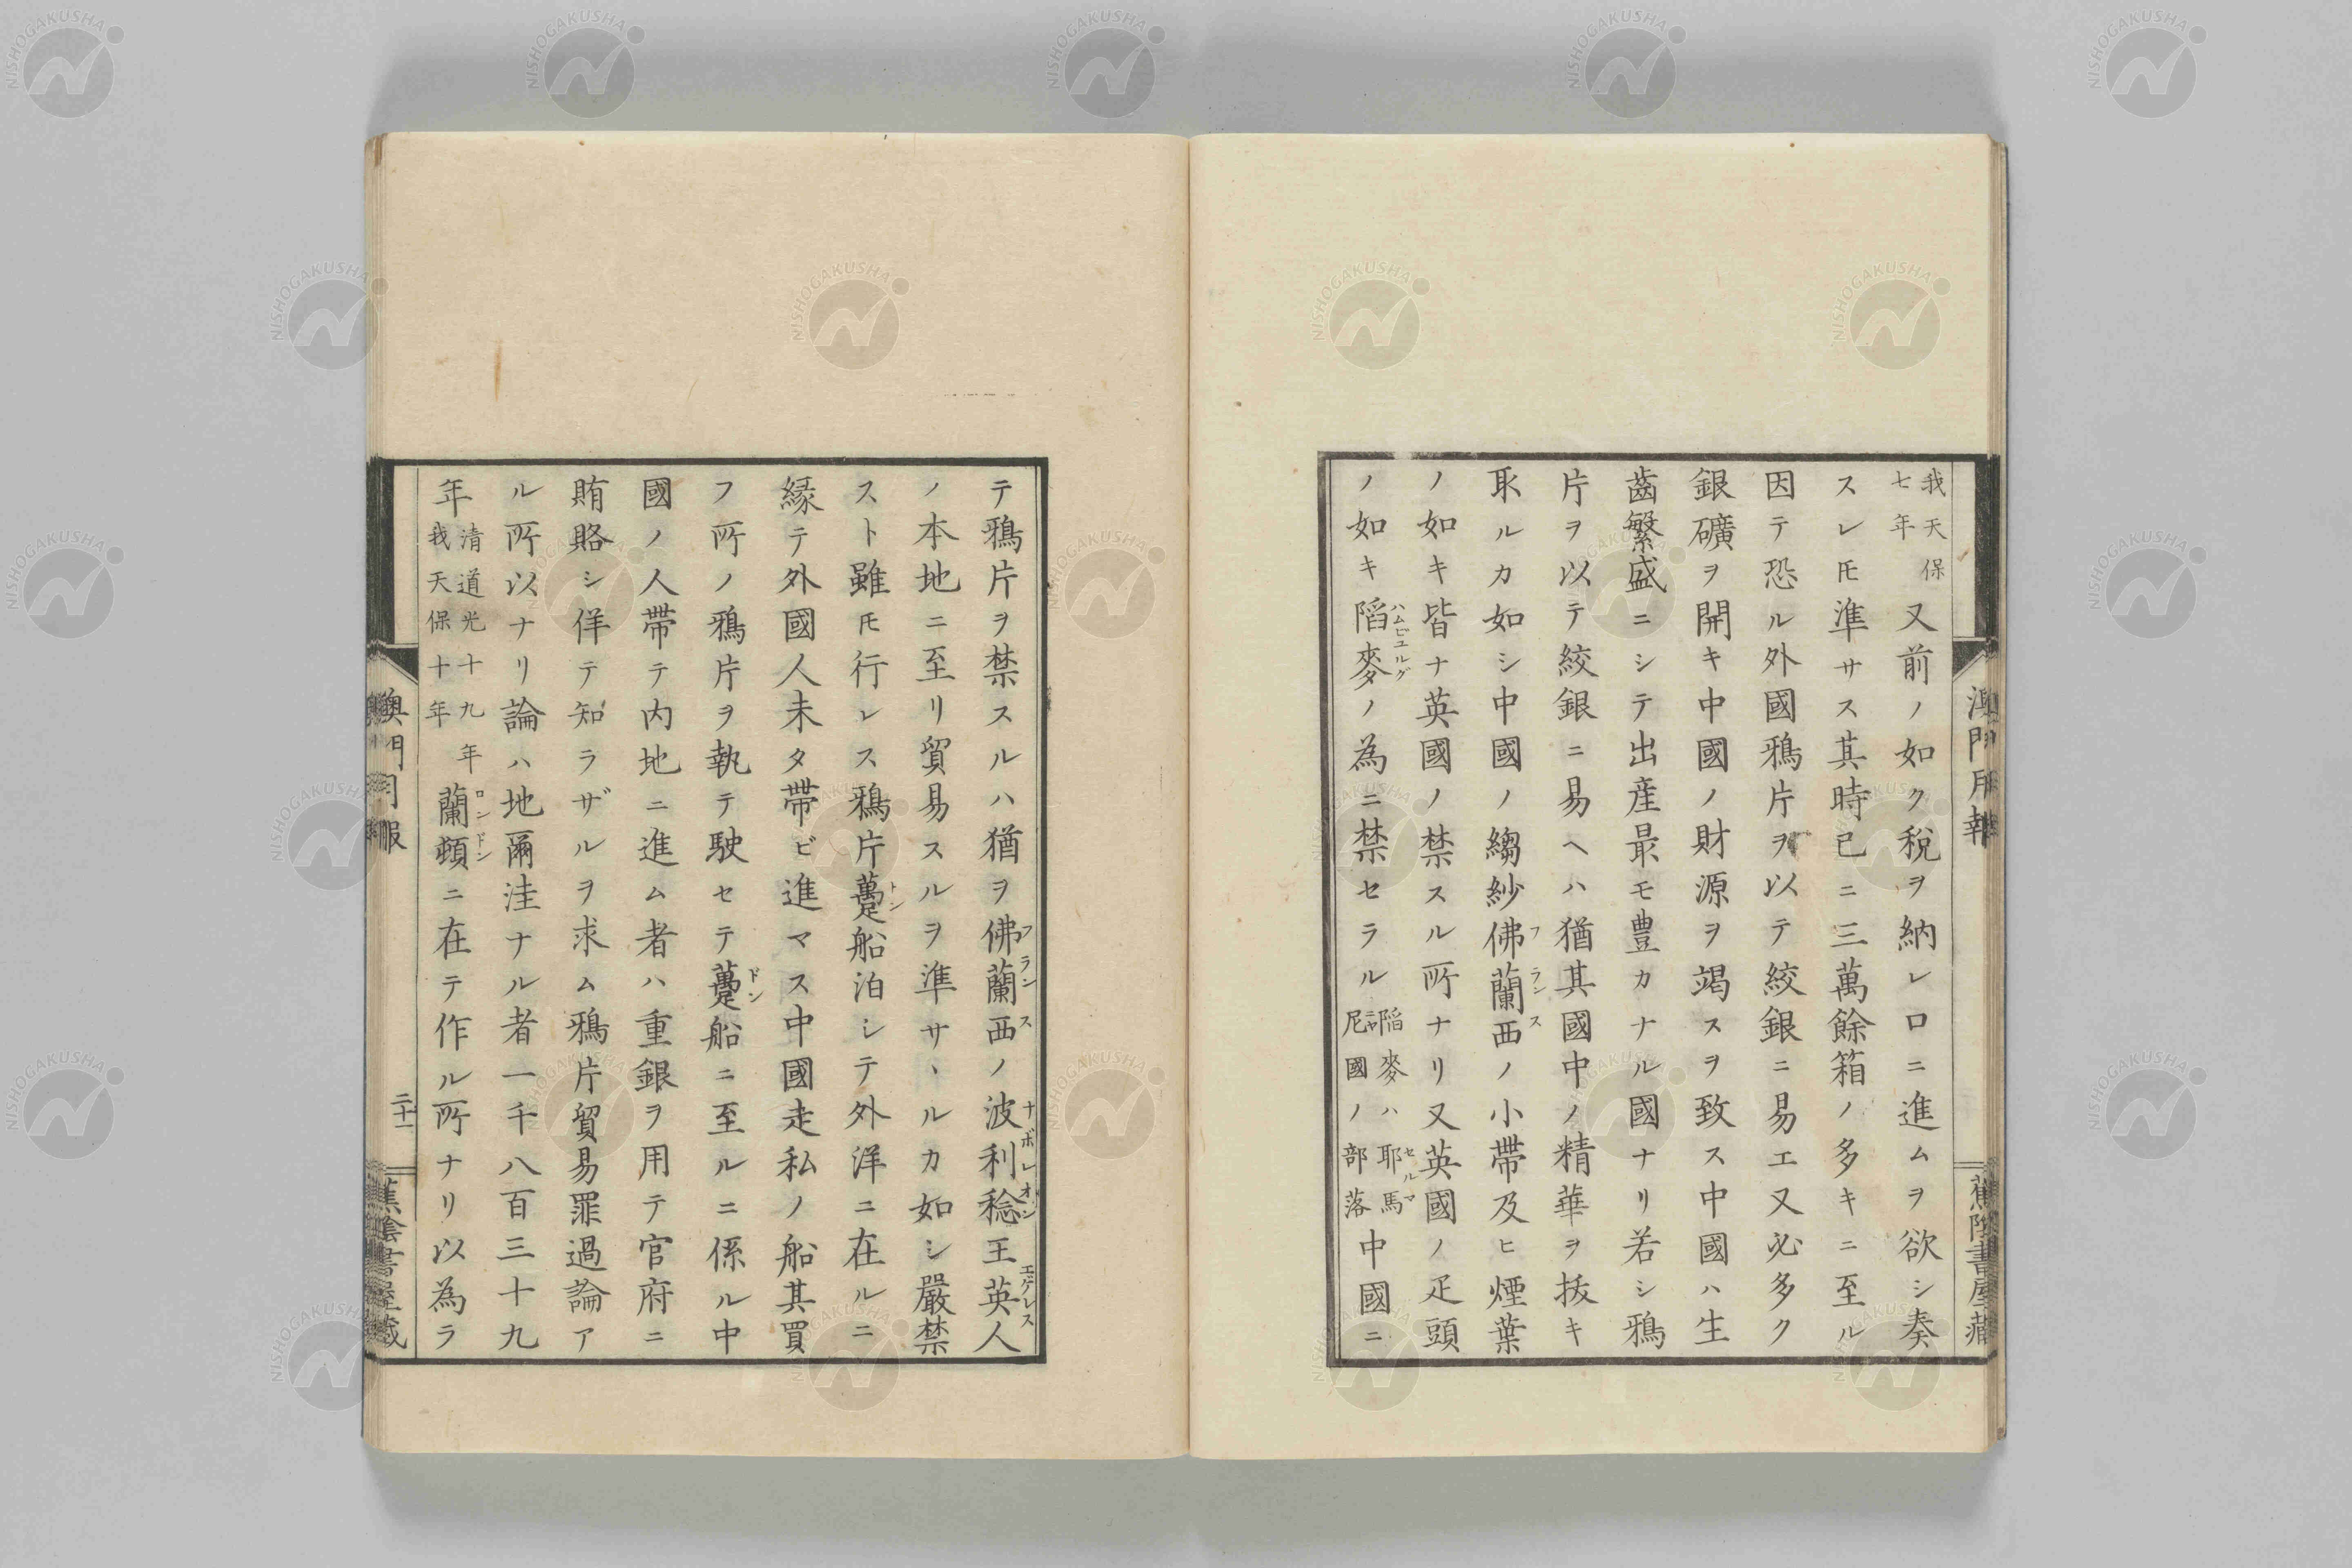 我天保七年又前ノ如ク税ヲ納レロニ進ムヲ欲シ奏
スレ𪜈準サス其時已ニ三萬餘箱ノ多キニ至ル
因テ恐ル外國鴉片ヲ以テ絞銀ニ易エ又必多ク
銀礦ヲ開キ中國ノ財源ヲ竭スヲ致ス中國ハ生
齒繁盛ニシテ出産最モ豊カナル國ナリ若シ鴉
片ヲ以テ絞銀ニ易ヘハ猶其國中ノ精華ヲ抜キ
取ルカ如シ中國ノ縐紗佛蘭西ノ小帶及ヒ煙葉
フランス
ノ如キ皆ナ英國ノ禁スル所ナリ又英國ノ疋頭
ノ如キ陷麥ノ為ニ禁セラル陷麥ハ耶馬尼國ノ部落中國ニ
ハムビユルグ
セルマニヤ
澳門月報
蕉陰書屋藏
テ鴉片ヲ禁スルハ猶ヲ佛蘭西ノ波利稔王英人
フランス
ナポレオン
エゲレス
ノ本地ニ至リ貿易スルヲ準サヽルカ如シ嚴禁
スト雖𪜈行レス鴉片躉船泊シテ外洋ニ在ルニ
トン
縁テ外國人未タ帶ビ進マス中國走私ノ船其買
フ所ノ鴉片ヲ執テ駛セテ躉船ニ至ルニ係ル中
ドン
國ノ人帶テ内地ニ進ム者ハ重銀ヲ用テ官府ニ
賄賂シ佯テ知ラザルヲ求ム鴉片貿易罪過論ア
ル所以ナリ論ハ地爾洼ナル者一千八百三十九
年清道光十九年我天保十年蘭頓ニ在テ作ル所ナリ以為ラ
ロンドン
澳門月報
二十一
蕉陰書屋藏
NISHOGAKUSHA